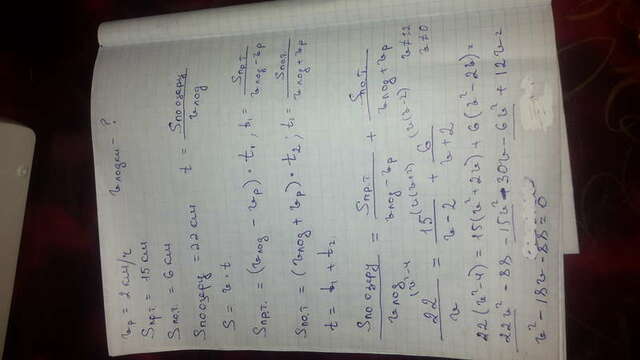 vр = 2 км/ч vлодки - ?
Sпр.т. = 15 км
Sпо.т. = 6 км
Sпо озеру = 22 км t = Sпо озеру / vлод
S = v · t
Sпр.т. = (vлод - vр) · t1, t1 = Sпр.т. / vлод - vр
Sпо.т = (vлод + vр) · t2, t2 = Sпо.т / vлод + vр
t = t1 + t2
Sпо озеру / vлод = Sпр.т. / vлод - vр + Sпо.т. / vлод + vр
22 (v²-4) / v = 15 (v(v+2)) / v - 2 + 6 (v(v-2)) / v + 2 v ≠ ±2 v ≠ 0
22(v²-4) = 15(v²+2v) + 6(v²-2v) =
22v² - 88 - 15v² - 30v - 6v² + 12v =
v² - 18v - 88 = 0